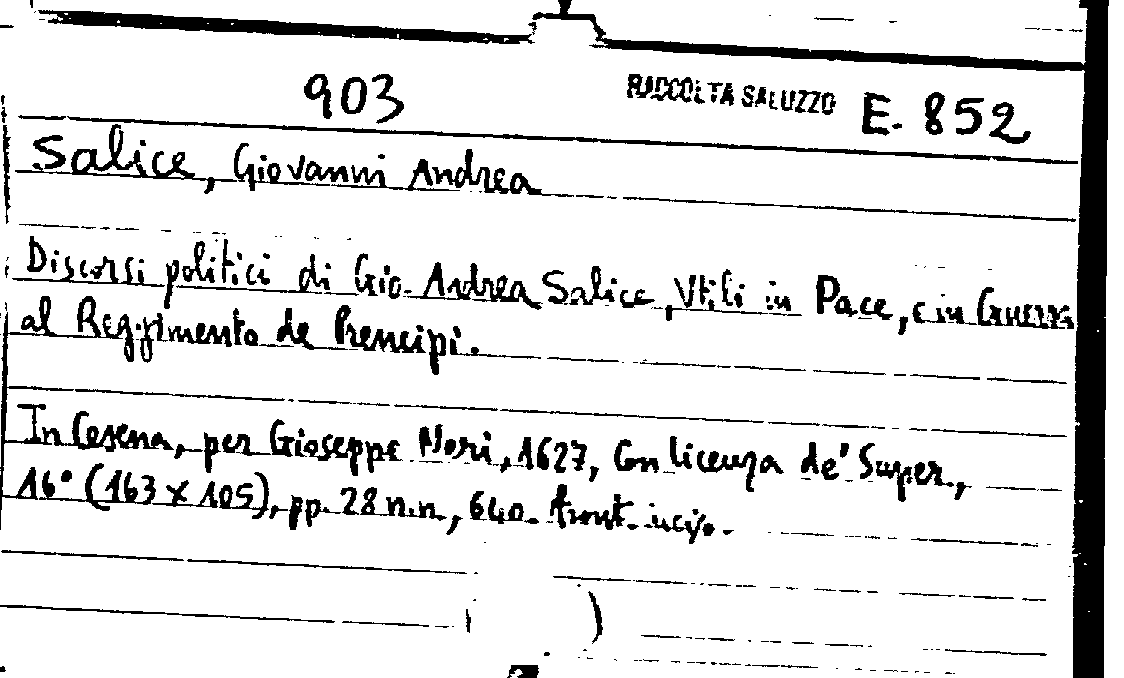 903 RACCOLTA SALUZZO E. 852
Salice, Giovanni Andrea
Discorsi politici di Gio. Andrea Salice, Vtili in Pace, e in Guerra
al Reggimento de Prencipi.
In Cesena, per Gioseppe Neri, 1627, Con licenza de' Super.,
16° (163 x 105), pp. 28 n.n., 640. front. inciso.